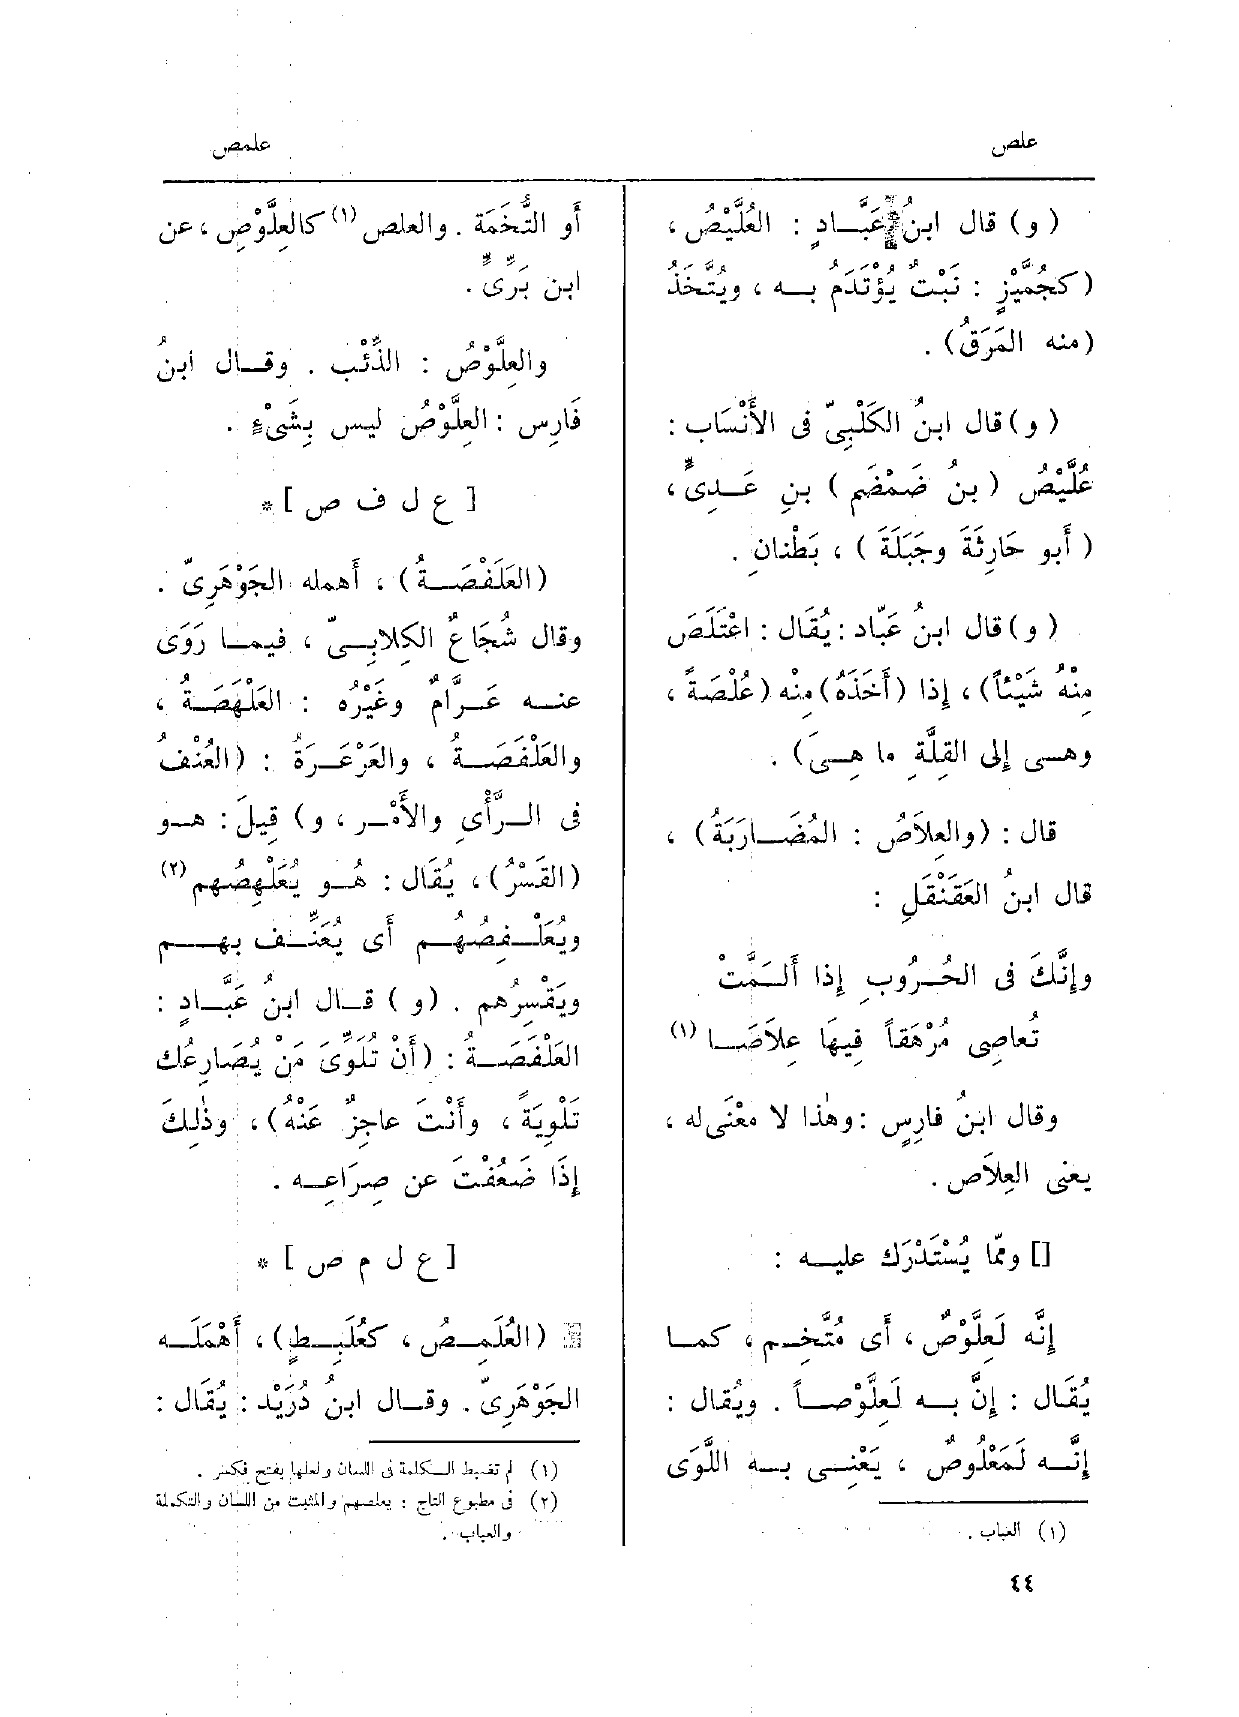 علص
علمص
( و ) قال ابنُ عَبَّـادٍ : العُلَّيْصُ ،
( كجُمَّيْزٍ : نَبْتٌ يُؤْتَدَمُ بـه ، ويُتَّخَذُ
( منه المَرَقُ ) .
( و ) قال ابنُ الكَلْبِىّ فى الأَنْسَاب :
عُلَّيْصُ ( بنُ ضَمْضَم ) بنِ عَـدِىٍّ ،
( أبو حَارِثَةَ وجَبَلَةَ ) ، بَطْنانِ .
( و ) قال ابنُ عَبّاد : يُقَال : اعْتَلَصَ
مِنْهُ شَيْئاً ) ، إذا ( أَخَذَهُ ) منْه ( عُلْصَةً ،
وهـى إلى القِلَّةِ ما هِـىَ ) .
قال : ( والعِلاَصُ : المُضَـارَبَةُ ) ،
قال ابنُ العَقَنْقَلِ :
وإنَّكَ فى الحُـرُوبِ إذا أَلَـمَّتْ
تُعاصِى مُرْهَقاً فِيهَا عِلاَصَـا (١)
وقال ابنُ فارِسٍ : وهٰذا لا معْنَى له ،
يعنى العِلاَص .
[] وممّا يُسْتَدْرَك عليـه :
إنَّه لَعِلَّوْصٌ ، أى مُتَّخـم ، كمـا
يُقَال : إنَّ بـه لَعِلَّوْصـاً . ويُقال :
إنَّـه لَمَعْلُوصٌ ، يَعْنـى بـه اللَّوَى
(١) العباب .
أو التُّخَمَة . والعلص (١) كالعِلَّوْصِ ، عن
ابن بَرِّىّ .
والعِلَّوْصُ : الذِّئْب . وقـال ابنُ
فَارِس : العِلَّوْصُ ليس بِشَىْءٍ .
[ ع ل ف ص ] *
( العَلْفَصَـةُ ) ، أَهمله الجَوْهَرِىّ .
وقال شُجَاعٌ الكِلابِـىّ ، فيمـا رَوَى
عنـه عَـرَّامٌ وغَيْرُه : العَلْهَصَـةُ ،
والعَلْفَصَـةُ ، والعَرْعَـرَةُ : ( العُنْفُ
فى الـرَّأْىِ والأَمْـرِ ، و ) قِيلَ : هـو
( القَسْرُ ) ، يُقَال : هُـو يُعَلْهِصُهم (٢)
ويُعَلْـفِصُهُـم أى يُعَنِّـف بهـم
ويَقْسِرُهم . ( و ) قـال ابنُ عَبَّـادٍ :
العَلْفَصَـةُ : ( أَنْ تُلَوِّىَ مَنْ يُصَارِعُك
تَلْوِيَةً ، وأَنْتَ عاجِزٌ عَنْهُ ) ، وذٰلِكَ
إذَا ضَعُفْتَ عن صِرَاعِـه .
[ ع ل م ص ] *
( العُلَمِـصُ ، كعُلَبِـطٍ ) ، أَهْمَلَـه
الجَوْهَرِىّ . وقـال ابنُ دُرَيْد : يُقَال :
(١) لم تضبط الـكلمة فى اللسان ولعلها بفتح فكسر .
(٢) فى مطبوع التاج : يعلصهم والمثبت من اللسان والتكملة
والعباب .
٤٤